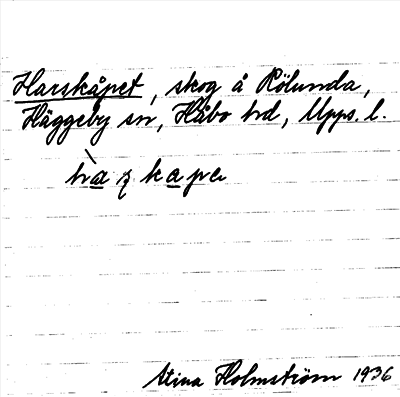 Harskåpet, skog å Rölunda,
Häggeby sn, Håbo hd, Upps. l.
Stina Holmström 1936